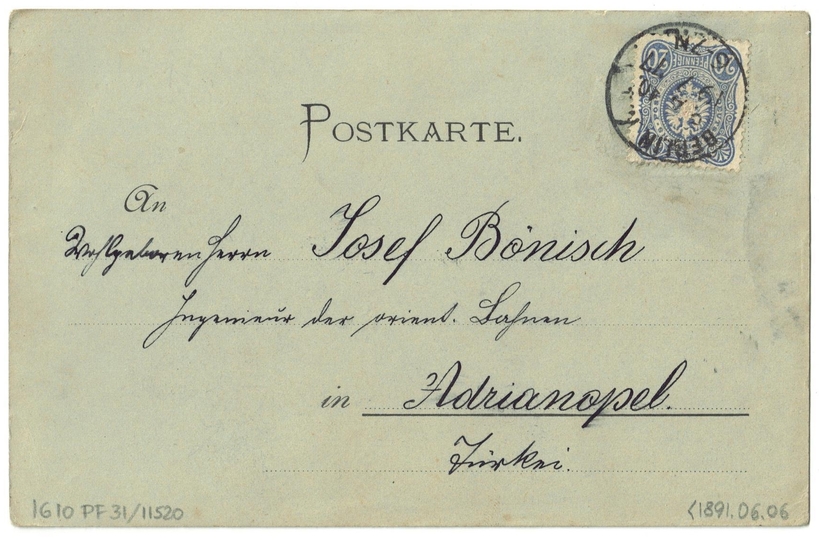 POSTKARTE.
20 PFENNIG 20
BERLIN
An
Wohlgeboren Herrn Josef Bönisch
Ingenieur der orient. Bahnen
in Adrianopel.
Türkei.
1610 PF 31/11520
(1891.06.06